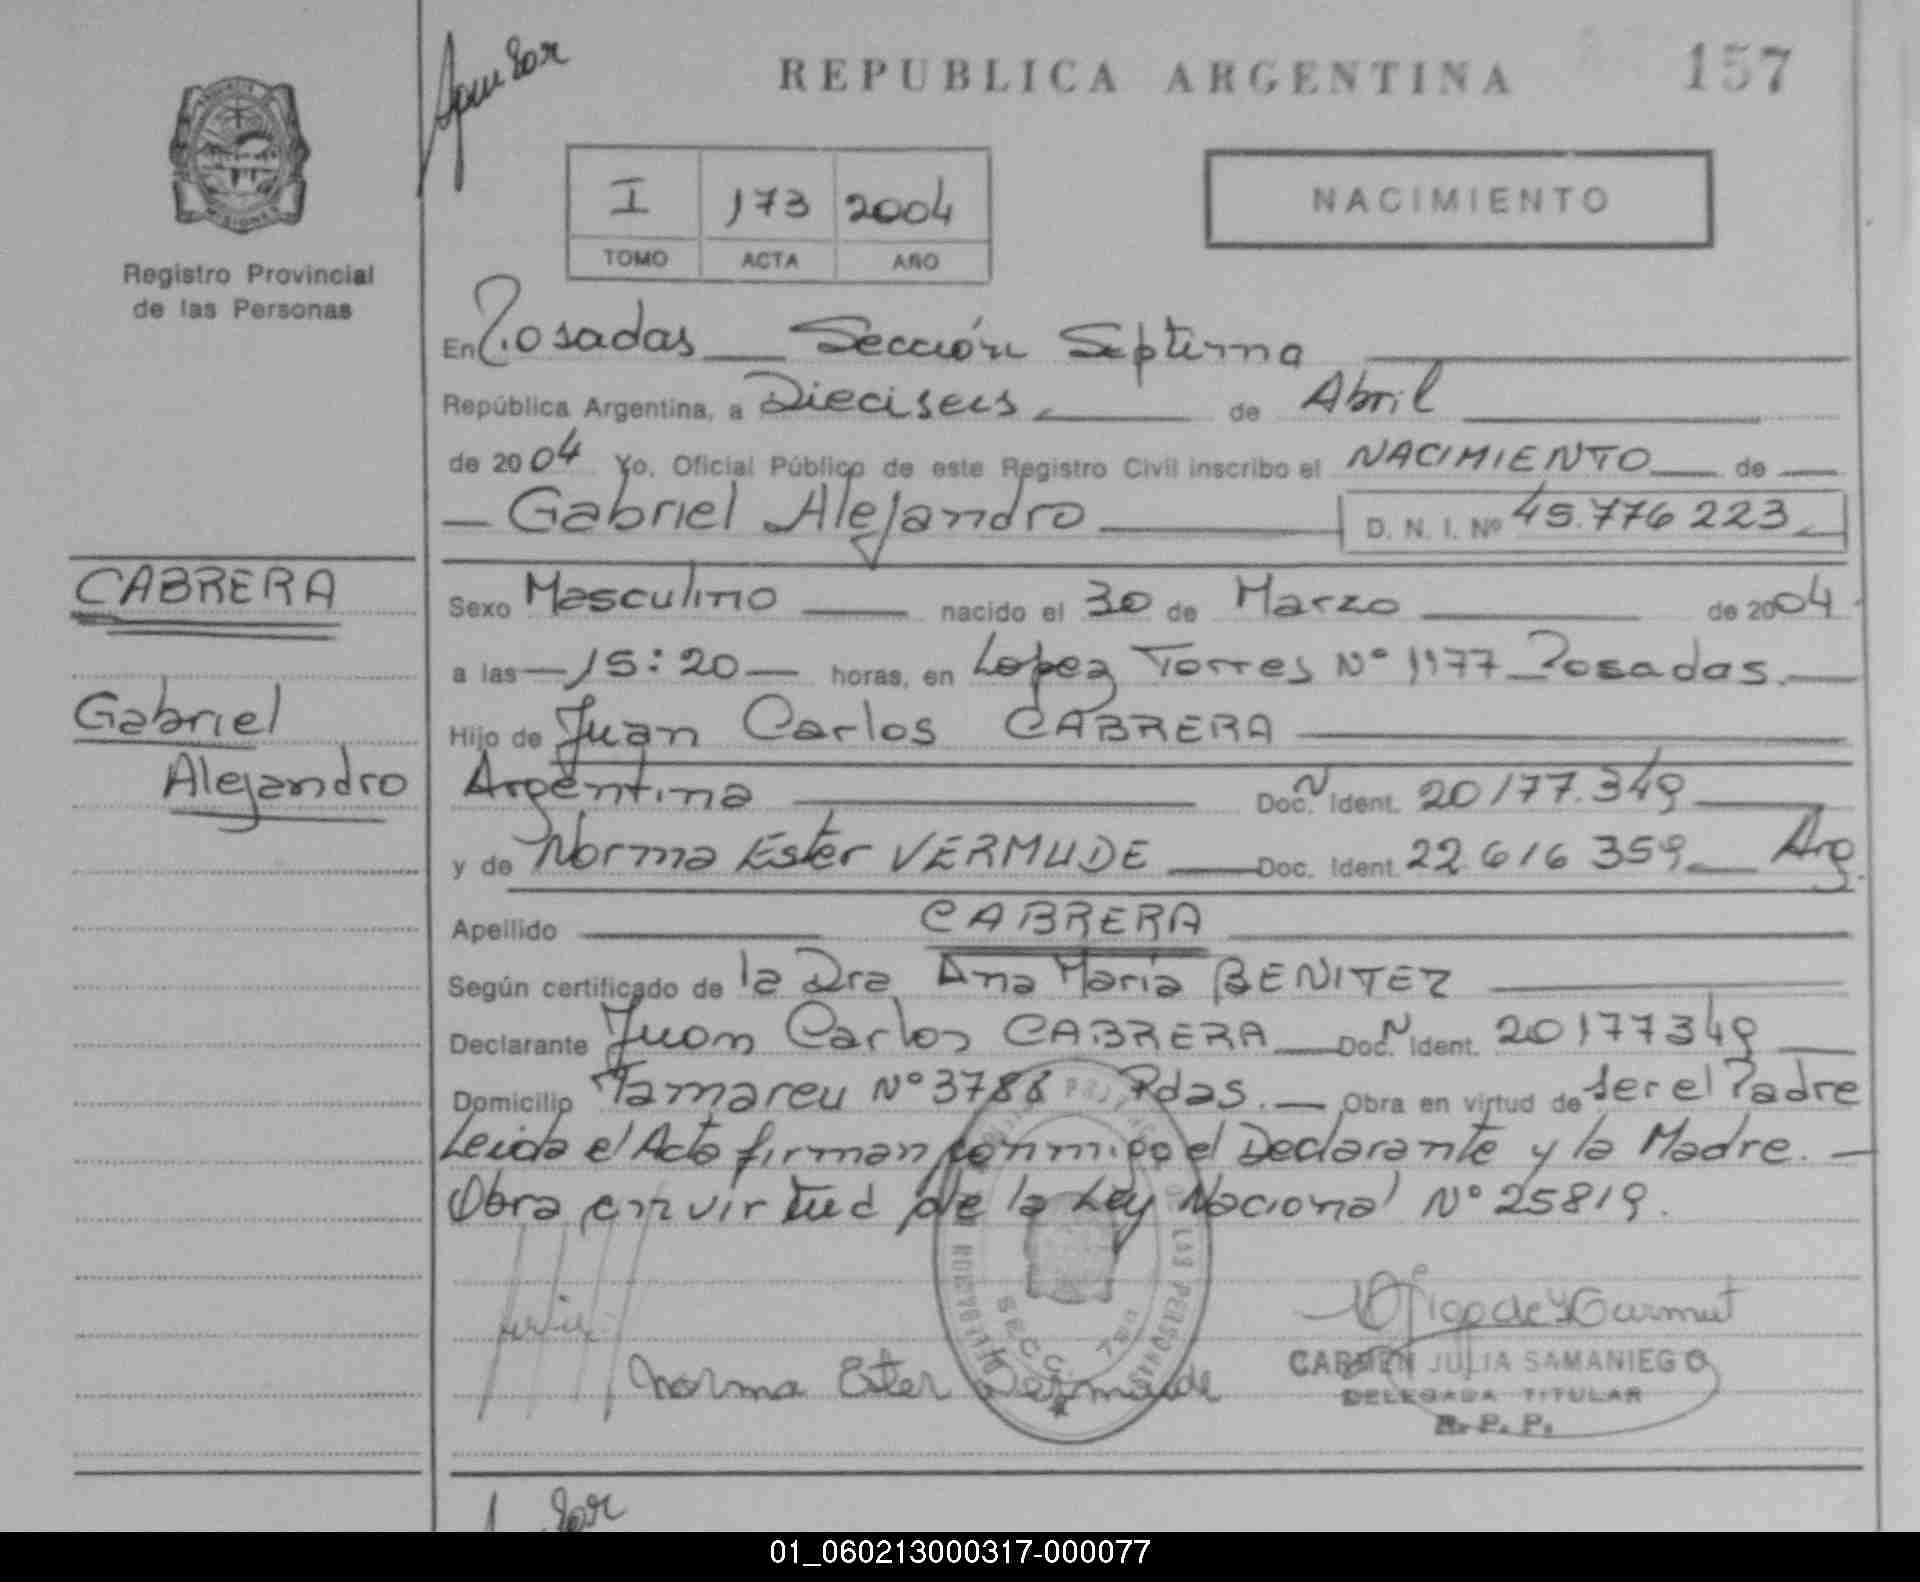 REPUBLICA ARGENTINA
157
MISIONES
Registro Provincial
de las Personas
I 173 2004
TOMO ACTA AÑO
NACIMIENTO
En Posadas Sección Septima
República Argentina, a Dieciseis de Abril
de 2004 Yo, Oficial Público de este Registro Civil inscribo el NACIMIENTO de
Gabriel Alejandro D. N. I. Nº 45.776 223
CABRERA
Gabriel
Alejandro
Sexo Masculino nacido el 30 de Marzo de 2004
a las 15:20 horas, en Lopez Torres Nº 1177 Posadas.
Hijo de Juan Carlos CABRERA
Argentina Doc. Ident. 20177.349
y de Norma Ester VERMUDE Doc. Ident. 22 616 359 Arg.
Apellido CABRERA
Según certificado de la Dra Ana María BENITEZ
Declarante Juan Carlos CABRERA Doc. Ident. 20177349
Domicilio Tamareu Nº 3788 Pdas. Obra en virtud de ser el Padre
Leida el Acta firman conmigo el Declarante y la Madre.
Obra en virtud de la Ley Nacional Nº 25819.
SECC. 7ma
Norma Ester Vermude
CARMEN JULIA SAMANIEGO
DELEGADA TITULAR
R. P. P.
01_060213000317-000077